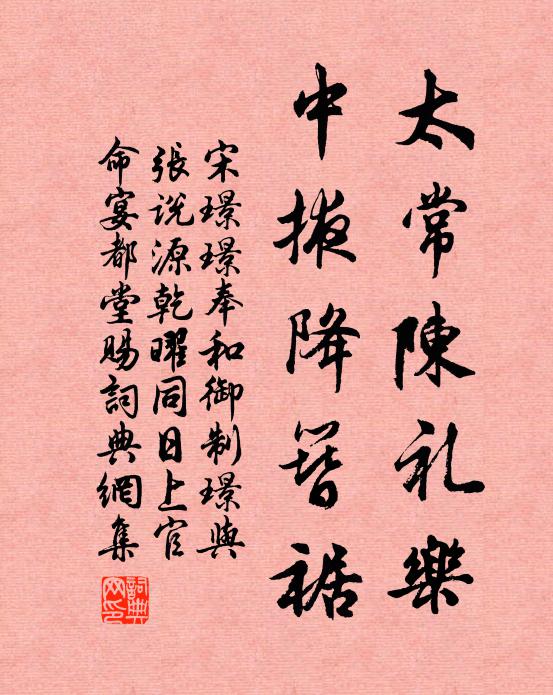 太常陳礼樂
中掖降簪裾
宋璟璟奉和御制璟與
張説源乾曜同日上官
命宴都堂賜詞典網集
詞典
网印